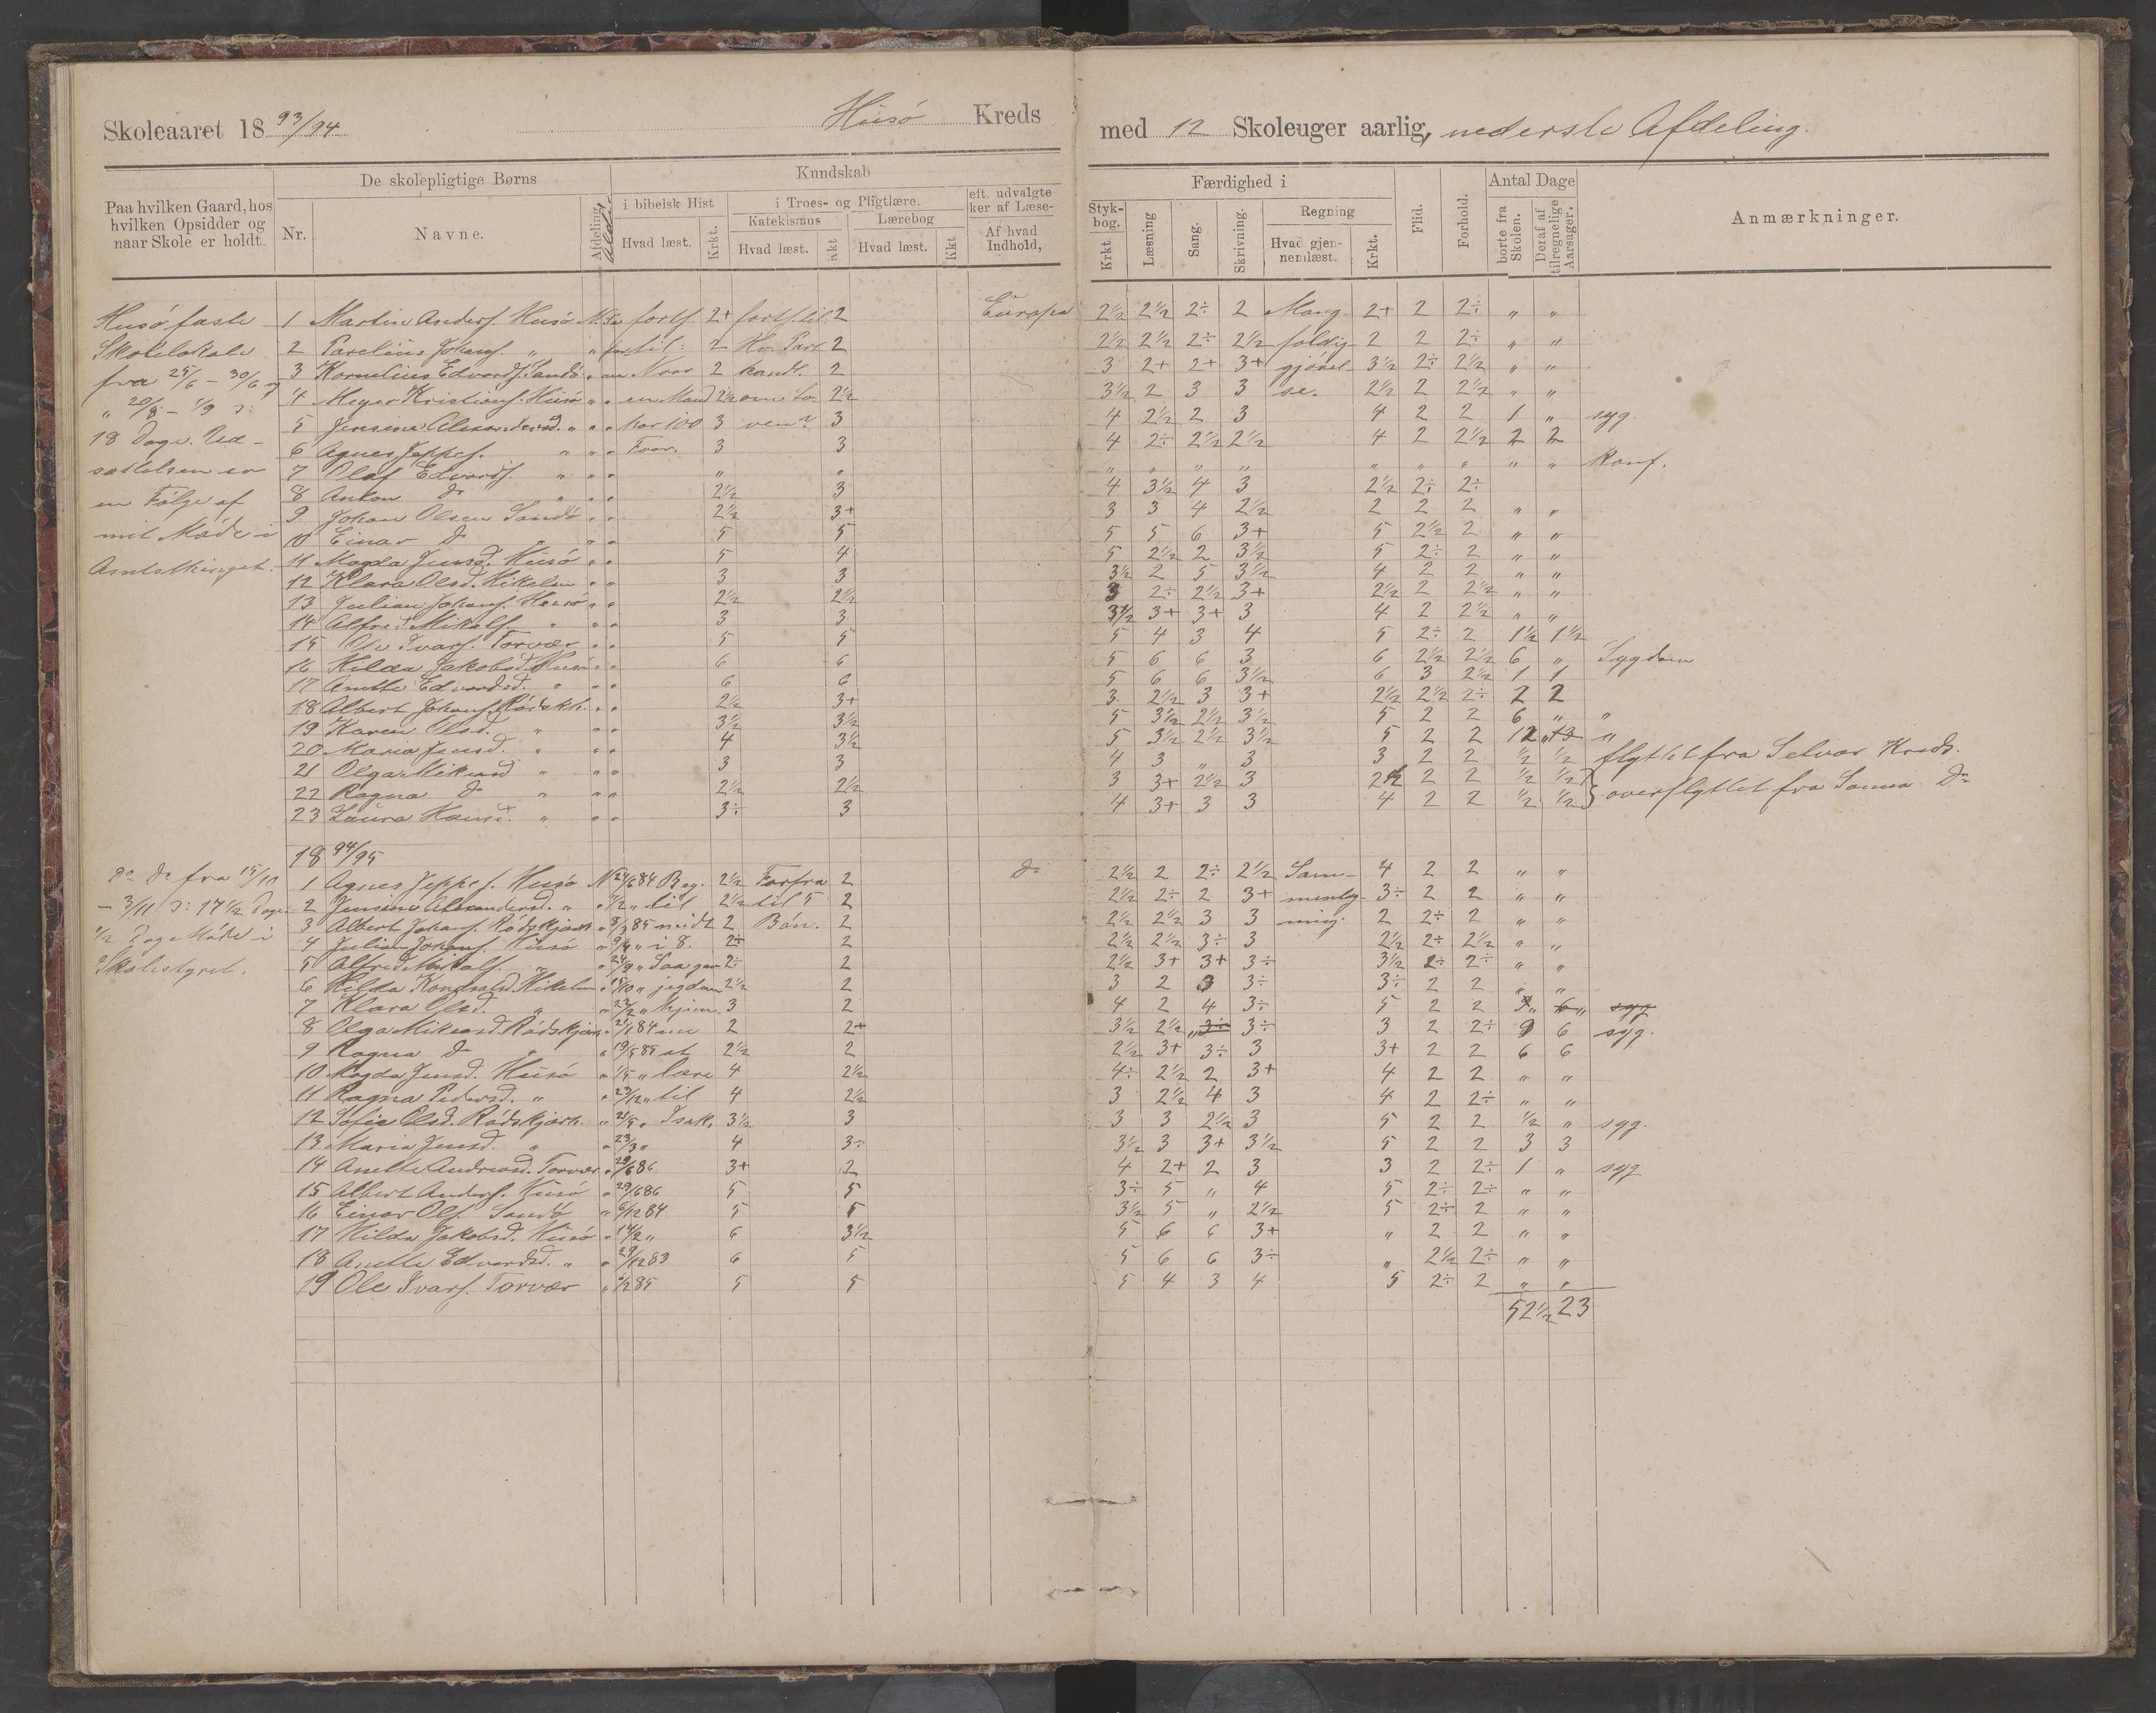 Skoleaaret 18 93/94 Husö Kreds med 12 Skoleuger aarlig, nederste Afdeling.
Paa hvilken Gaard, hos hvilken Opsidder og naar Skole er holdt.
De skolepligtige Børns
Nr. Navne. Afdeling. Alder
Kundskab
i bibelsk Hist. Hvad læst. Krkt.
i Troes- og Pligtlære.
Katekismus Hvad læst. Kkt
Lærebog Hvad læst. Kkt
eft. udvalgte Styk-
ker af Læse- bog.
Af hvad Indhold, Krkt
Færdighed i
Læsning Sang. Skrivning.
Regning Hvad gjennemlæst. Krkt.
Flid. Forhold.
Antal Dage
borte fra Skolen. Deraf af tilregnelige Aarsager.
Anmærkninger.
Husö faste
Skolelokale
fra 25/6 - 30/6 og
" 20/8 - 1/9 ɔ:
18 Dage. Ud-
sættelsen er
en Følge af
mit Möde i
Amtsthinget.
1 Martin Andersf. Husö fortf. 2+ fortf. til 2 Europa 2½ 2½ 2÷ 2 Mang- 2+ 2 2÷ " "
2 Parelius Johansf. " til: 2 Hv. Part 2 2½ 2½ 2÷ 2½ foldig- 2 2 2÷ " "
3 Kornelius Edvardsf. Sandö Naar 2 handl. 2 3 2+ 2+ 3+ gjörel- 3½ 2÷ 2½ " "
4 Meyer Kristiansf. Husö " " en Mand 2½ om Lo- 2½ 3½ 2 3 3 se. 2½ 2 2½ " "
5 Jensine Alexandersd. " " " har 100 3 ven? 3 4 2½ 2 3 4 2 2 1 " syg.
6 Agnes Jeppes. " " " Faar. 3 3 4 2÷ 2½ 2½ 4 2 2½ 2 2
7 Olaf Edvardsf. " " " " " " " " " " " " " " konf.
8 Anton Do " " " 2½ 3 4 3½ 4 3 2½ 2÷ 2÷
9 Johan Olsen Sandö " " 2½ 3+ 3 3 4 2½ 2 2 2 " "
10 Einar Do " " " 5 5 5 5 6 3+ 5 2½ 2 " "
11 Magda Jensd. Husö " " 5 4 5 2½ 2 3½ 5 2÷ 2 " "
12 Klara Olsd. Mikelsn " " 3 3 3½ 2 5 3½ 4 2 2 " "
13 Julian Johansf. Husö " " 2½ 2½ 3 2÷ 2½ 3+ 2½ 2 2½ " "
14 Alfred Mikalsf. " " " 3 3 3½ 3+ 3+ 3 4 2 2½ " "
15 Ole Ivarsf. Torvær " " 5 5 5 4 3 4 5 2÷ 2 1½ 1½
16 Hilda Jakobsd. Husö " " 6 6 5 6 6 3 6 2½ 2½ 6 " Sygdom
17 Anette Edvardsd. " " " 6 6 5 6 6 3½ 6 3 2½ 1 1
18 Albert Johansf. Rödskh. " " 2½ 3+ 3 2½ 3 3+ 2½ 2½ 2÷ 2 2
19 Karen Olsd. " " " 3½ 3½ 5 3½ 2½ 3½ 5 2 2 6 " "
20 Maria Jensd. " " " 4 3½ 5 3½ 2½ 3½ 5 2 2 12 " "
21 Olga Mikeasd " " " 3 3 4 3 " 3 3 2 2 ½ ½ flyttet fra Selvær Kreds.
22 Ragna Do " " " 2½ 2½ 3 3+ 2½ 3 2½ 2 2 ½ ½ } overflyttet fra Sanna Do
23 Laura Hansd. " " " 3÷ 3 4 3+ 3 3 4 2 2 ½ ½
18 94/95
Do Do fra 15/10
- 3/11 ɔ: 17½ Dage.
½ Dag Möde i
Skolestyret.
1 Agnes Jeppes. Husö N 24/6 84 Beg. 2½ Forfra 2 Do 2½ 2 2÷ 2½ Sam- 4 2 2 " "
2 Jensine Alexandersd. " til 2½ til 5 2 2½ 2÷ 2 3+ menlig- 3÷ 2 2 " "
3 Albert Johansf. Rödskjær " 8/3 85 midt 2 Bön. 2 2½ 2½ 3 3 ning. 2 2÷ 2 " "
4 Julian Johansf. Husö " 9/4 " i 8. 2÷ 2 2½ 2½ 3÷ 3 2½ 2÷ 2½ " "
5 Alfred Mikalsf. " " 24/9 " Saa gav 2÷ 2 2½ 3+ 3+ 3÷ 3½ 2÷ 2÷ " "
6 Hilda Konradsd. Mikelsn " 15/10 " jegdom 2½ 2 3 2 3 3÷ 3÷ 2 2 " "
7 Klara Olsd. " " 22/2 " hjem 3 2 4 2 4 3÷ 5 2 2 " " syg
8 Olga Mikeasd. Rödskjær " 21/1 84 2 2+ 3½ 2½ " 3÷ 3÷ 3 2 2÷ 9 6 syg.
9 Ragna Do " " 19/5 85 at 2½ 2 2½ 3+ 3÷ 3 3+ 2 2 6 6
10 Magda Jensd. Husö " 1/5 " lære 4 2½ 4÷ 2½ 2 3+ 4 2 2 " "
11 Ragna Pedersd. " " 23/12 " til 4 2½ 3 2½ 4 3 4 2 2÷ " "
12 Sofie Olsd. Rödskjærh. " 21/5 " Isak. 3½ 3 3 3 2½ 3 5 2 2 ½ " syg.
13 Maria Jensd. " " 23/3 " 4 3÷ 3½ 3 3+ 3½ 5 2 2 3 3
14 Anette Andreasd. Torvær " 29/6 86 3+ 2 4 2+ 2 3 3 2 2÷ 1 " syg
15 Albert Andersf. Husö " 29/6 86 5 5 3÷ 5 " 4 5 2÷ 2÷ " "
16 Einar Olsf. Sandö " 6/12 84 5 5 3½ 5 " 2½ 5 2÷ 2 " "
17 Hilda Jakobsd. Husö " 14/2 " 6 3½ 5 6 6 3+ " 2 2 " "
18 Anette Edvardsd. " " 29/12 83 6 5 5 6 6 3÷ " 2½ 2÷ " "
19 Ole Ivarsf. Torvær " 85 5 5 5 4 3 4 5 2÷ 2 " "
52½ 23